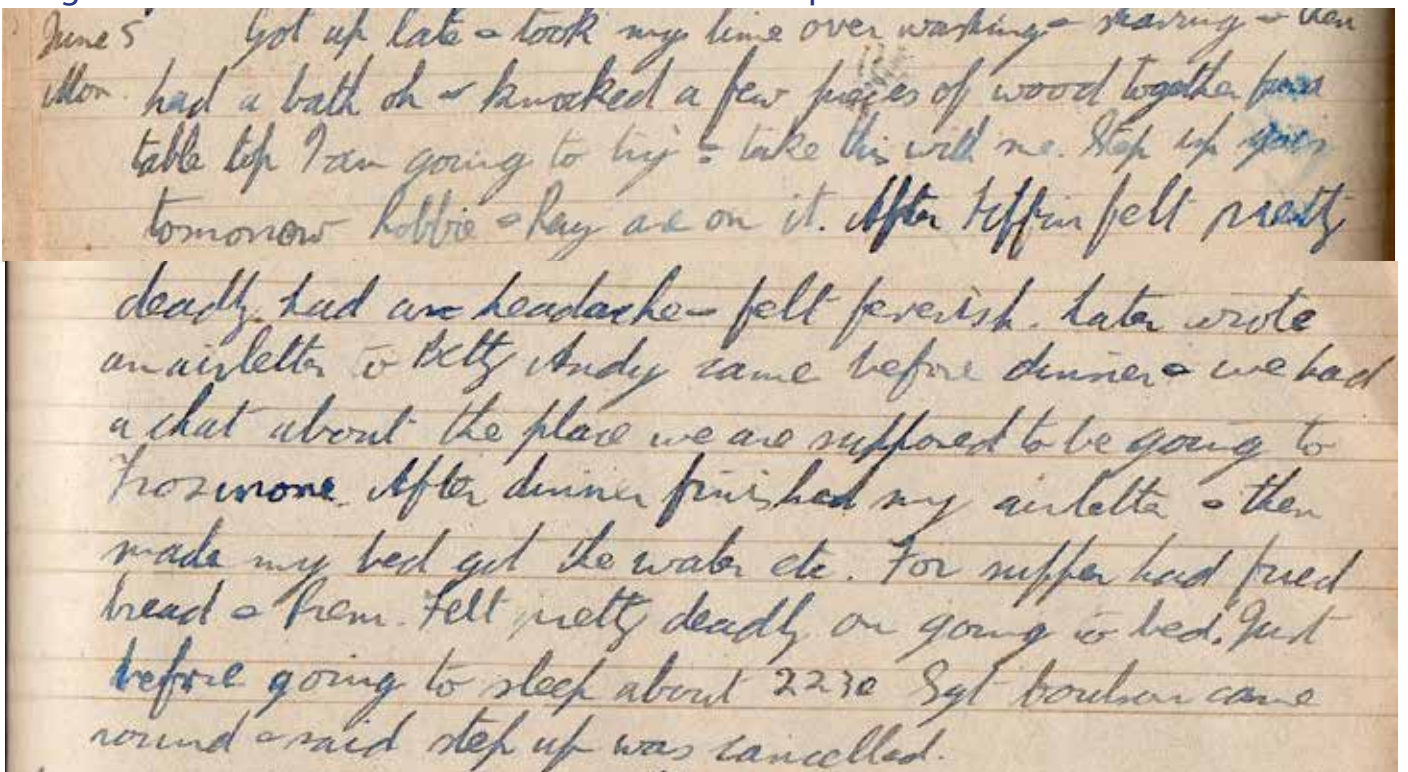 June 5 Got up late & took my time over washing & shaving & then
Mon. had a bath oh & knocked a few pieces of wood together for a
table top I am going to try & take this with me. Step up goes
tomorrow Robbie & Ray are on it. After tiffin felt pretty
deadly, had an headache & felt feverish. Later wrote
an airletter to Betty Andy came before dinner & we had
a chat about the place we are supposed to be going to
Frosinone. After dinner finished my airletter & then
made my bed got the water etc. For supper had fried
bread & Prem. Felt pretty deadly on going to bed. Just
before going to sleep about 2230 Sgt came
round & said step up was cancelled.